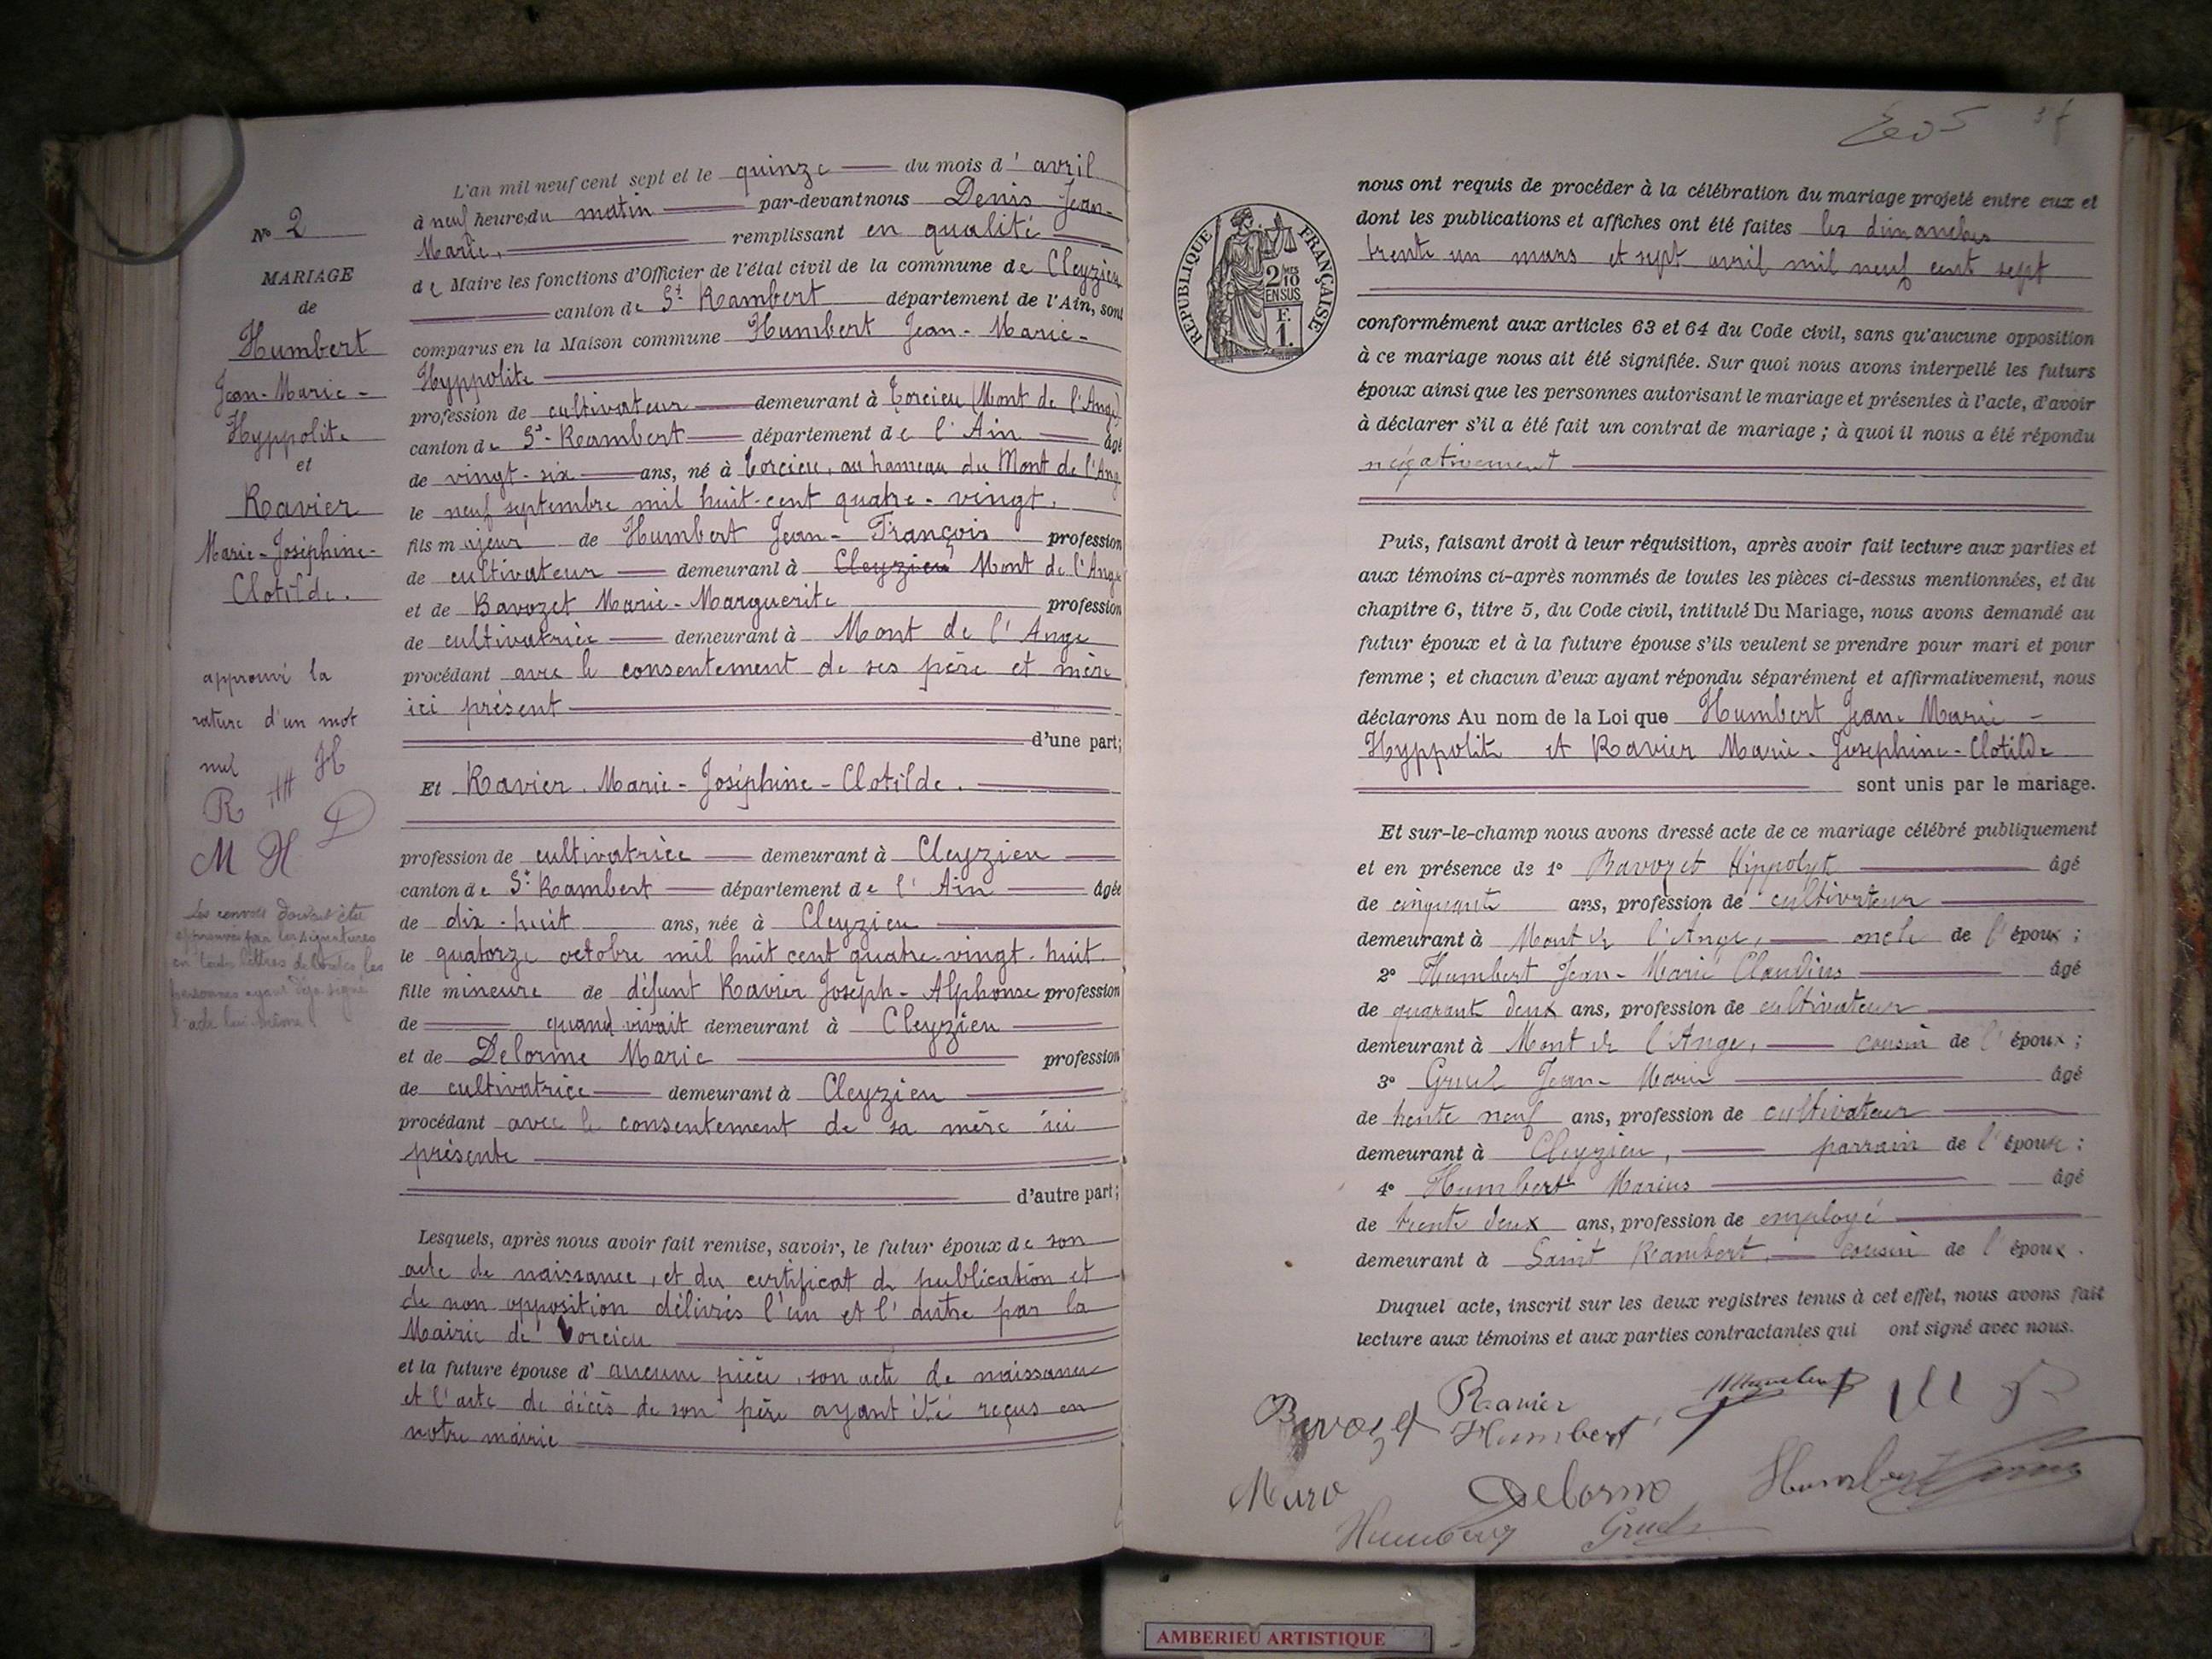 L'an mil neuf cent sept et le quinze du mois d'avril
à neuf heures du matin par-devant nous Denis Jean-
Marie, remplissant en qualité
de Maire les fonctions d'Officier de l'état civil de la commune de Cleyzieu
canton de St Rambert département de l'Ain, sont
comparus en la Maison commune Humbert Jean-Marie-
Hyppolite
profession de cultivateur demeurant à Torcieu (Mont de l'Ange)
canton de St-Rambert département de l'Ain âgé
de vingt-six ans, né à Torcieu, au hameau du Mont de l'Ang
le neuf septembre mil huit-cent quatre-vingt,
fils majeur de Humbert Jean-François profession
de cultivateur demeurant à Cleyzieu Mont de l'Ange
et de Bavozet Marie-Marguerite profession
de cultivatrice demeurant à Mont de l'Ange
procédant avec le consentement de ses père et mère
ici présent
d'une part;
Et Ravier Marie-Joséphine-Clotilde.
profession de cultivatrice demeurant à Cleyzieu
canton de St Rambert département de l'Ain âgée
de dix-huit ans, née à Cleyzieu
le quatorze octobre mil huit cent quatre-vingt-huit
fille mineure de défunt Ravier Joseph-Alphonse profession
de quand vivait demeurant à Cleyzieu
et de Delorme Marie profession
de cultivatrice demeurant à Cleyzieu
procédant avec le consentement de sa mère ici
présente
d'autre part;
Lesquels, après nous avoir fait remise, savoir, le futur époux de son
acte de naissance, et du certificat de publication et
de non opposition délivrés l'un et l'autre par la
Mairie de Torcieu
et la future épouse d'aucune pièce, son acte de naissance
et l'acte de décès de son père ayant été reçus en
notre mairie
No 2
MARIAGE
de
Humbert
Jean-Marie-
Hyppolite
et
Ravier
Marie-Joséphine-
Clotilde.
approuvé la
rature d'un mot
nul
H
R HH
D
M H
Les renvois doivent être
approuvés par les signatures
en toutes lettres de toutes les
personnes ayant déjà signé
l'acte lui-même.
37
RÉPUBLIQUE FRANÇAISE
2 10MES
EN SUS
F.
1.
nous ont requis de procéder à la célébration du mariage projeté entre eux et
dont les publications et affiches ont été faites les dimanches
trente un mars et sept avril mil neuf cent sept
conformément aux articles 63 et 64 du Code civil, sans qu'aucune opposition
à ce mariage nous ait été signifiée. Sur quoi nous avons interpellé les futurs
époux ainsi que les personnes autorisant le mariage et présentes à l'acte, d'avoir
à déclarer s'il a été fait un contrat de mariage; à quoi il nous a été répondu
négativement
Puis, faisant droit à leur réquisition, après avoir fait lecture aux parties et
aux témoins ci-après nommés de toutes les pièces ci-dessus mentionnées, et du
chapitre 6, titre 5, du Code civil, intitulé Du Mariage, nous avons demandé au
futur époux et à la future épouse s'ils veulent se prendre pour mari et pour
femme; et chacun d'eux ayant répondu séparément et affirmativement, nous
déclarons Au nom de la Loi que Humbert Jean-Marie-
Hyppolite et Ravier Marie-Josephine-Clotilde
sont unis par le mariage.
Et sur-le-champ nous avons dressé acte de ce mariage célébré publiquement
et en présence de 1o Bavozet Hippolyte âgé
de cinquante ans, profession de cultivateur
demeurant à Mont de l'Ange, oncle de l'époux;
2o Humbert Jean-Marie Claudius âgé
de quarante deux ans, profession de cultivateur
demeurant à Mont de l'Ange, cousin de l'époux;
3o Gruel Jean-Marie âgé
de trente neuf ans, profession de cultivateur
demeurant à Cleyzieu, parrain de l'épouse;
4o Humbert Marius âgé
de trente deux ans, profession de employé
demeurant à Saint Rambert, cousin de l'époux.
Duquel acte, inscrit sur les deux registres tenus à cet effet, nous avons fait
lecture aux témoins et aux parties contractantes qui ont signé avec nous.
Bavozet Ravier
Humbert
Delorme Humbert
Humbert Gruel
AMBERIEU ARTISTIQUE